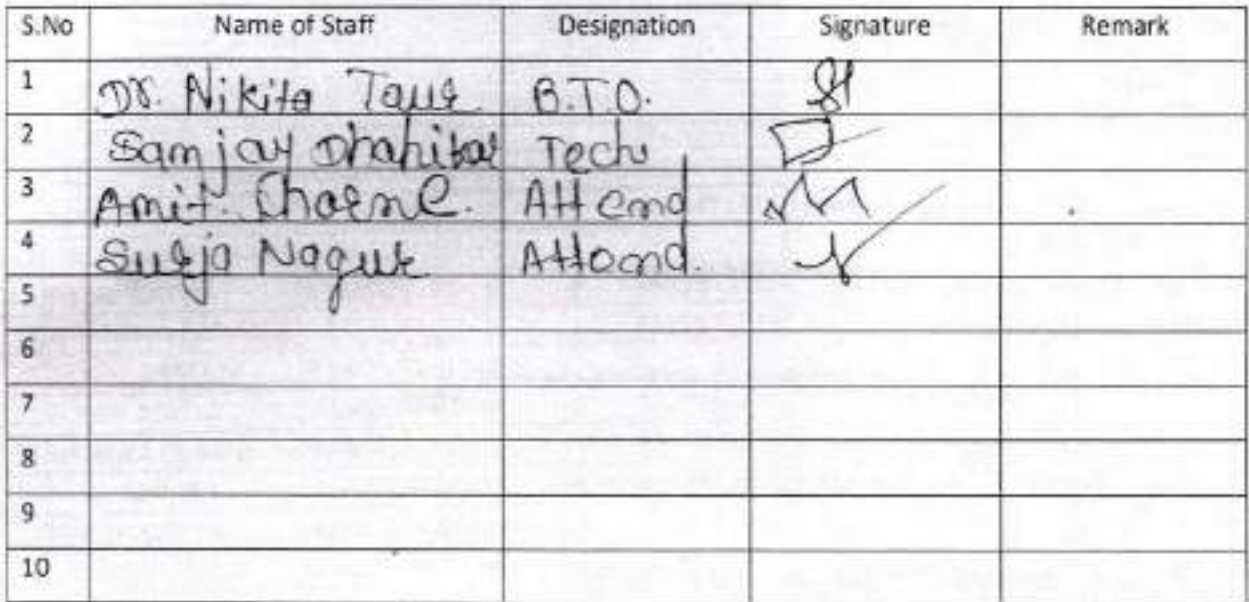 S.No Name of Staff Designation Signature Remark
1 Dr. Nikita Taue B.T.O.
2 Samjay Dhahikar Tech
3 Amit. Charne. Attend
4 Surja Nague Attoand.
5
6
7
8
9
10